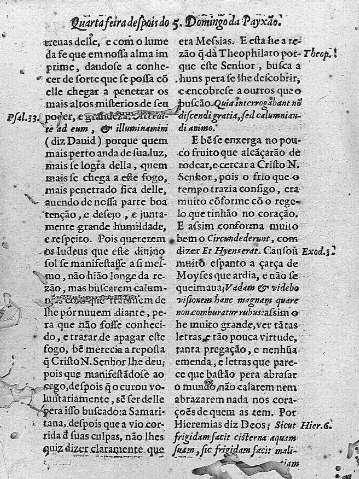 Quarta feira despois do 5. Domingo da Payxão.
treuas desse, e com o lume
da fe que em nossa alma im
prime, dandose a conhe-
cer de sorte que se possa cõ
elle chegar a penetrar os
mais altos misterios de seu
Psal. 33. poder, e
te ad eum, & illuminamini
(diz Dauid) porque quem
mais perto anda de sua luz,
mais se logra della, quem
mais se chega a este fogo,
mais penetrado fica delle,
auendo de nossa parte boa
tenção, e desejo, e junta-
mente grande humildade,
e respeito. Pois quererem
os Iudeus que este diuino
sol se manifestasse a si mes-
mo, não hião longe da re-
zão, mas buscarem calum-
lhe por nuuem diante, pe-
ra que não fosse conheci-
do, e tratar de apagar este
fogo, bẽ merecia a reposta
q̃ Christo N. Senhor lhe deu;
pois que manifestãdose ao
cego, despois q̃ o curou vo-
luntariamente, sẽ ser delle
pera isso buscado: a Samari-
tana, despois que a vio cor-
rida d suas culpas, não lhes
quiz dizer claramente que
era Messias. E esta he a re-
zão q̃ dà Theophilato por- Theop.
que este Senhor, busca a
huns pera se lhe descobrir,
e encobrese a outros que o
buscão. Quia interrogabant nõ
discendi gratia, sed calumnian-
di animo.
E bẽ se enxerga no pou-
co fruito que alcãçarão de
rodear, e cercar a Cristo N.
Senhor, pois o frio que o
tempo trazia consigo, era
muito cõforme cõ o rege-
lo que tinhão no coração.
E assim conforma muito
bem o Circundederunt, com
dizer Et Hyenserat. Causou Exod. 3.
muito espanto a çarça de
Moyses que ardia, e não se
queimaua; Vadam & videbo
visionem hanc magnam quare
non comburatur rubus: assim o
he muito grande, ver tãtas
letras, e tão pouca virtude,
tanta pregação, e nenhũa
emenda, e letras que pare-
ce que bastão pera abrasar
o mundo, não calarem nem
abrazarem nada nos cora-
ções de quem as tem. Por
Hieremias diz Deos; Sicut Hier. 6.
frigidam facit cisterna aquam
suam, sic frigidam facit mali-
tiam